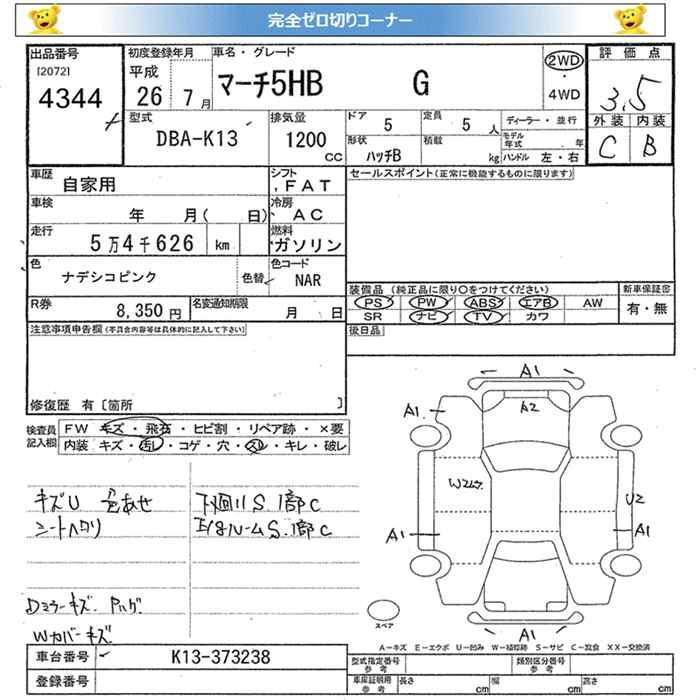 完全ゼロ切りコーナー
出品番号 初度登録年月 車名・グレード 2WD・4WD 評価点
[2072] 平成
4344 26 7月 マーチ5HB G 3.5
型式 排気量 ドア 定員 ディーラー・並行 外装 内装
DBA-K13 1200 CC 5 5人 モデル年式 年 C B
形状 積載 ハンドル 左・右
ハッチB kg
車歴 シフト セールスポイント(正常に機能するものに限ります)
自家用 FAT
車検 冷房
年 月( 日) AC
走行 燃料
5万4千626 km ガソリン
色 色コード
ナデシコピンク 色替 NAR
装備品(純正品に限り○をつけてください) 新車保証書
R券 名変通知期限 PS PW ABS エアB AW 有・無
8,350円 月 日 SR ナビ TV カワ
注意事項申告欄(不具合内容等は具体的に記入して下さい) 後日品
修復歴 有[箇所 ]
検査員 FW キズ・飛石・ヒビ割・リペア跡・×要
記入欄 内装 キズ・汚レ・コゲ・穴・スレ・キレ・破レ
キズU 色あせ 下廻りS 1部C
シートヘタリ S.1部C
Dミラーキズ
Wカバーキズ
A1
A2
A1 A1
W2 U2
A1 A1
A1
スペア
A-キズ E-エクボ U-凹み W-補修跡 S-サビ C-腐食 XX-交換済
車台番号 K13-373238 型式指定番号 参考 類別区分番号 参考
登録番号 車庫証明用 参考 長さ cm 幅 cm 高さ cm